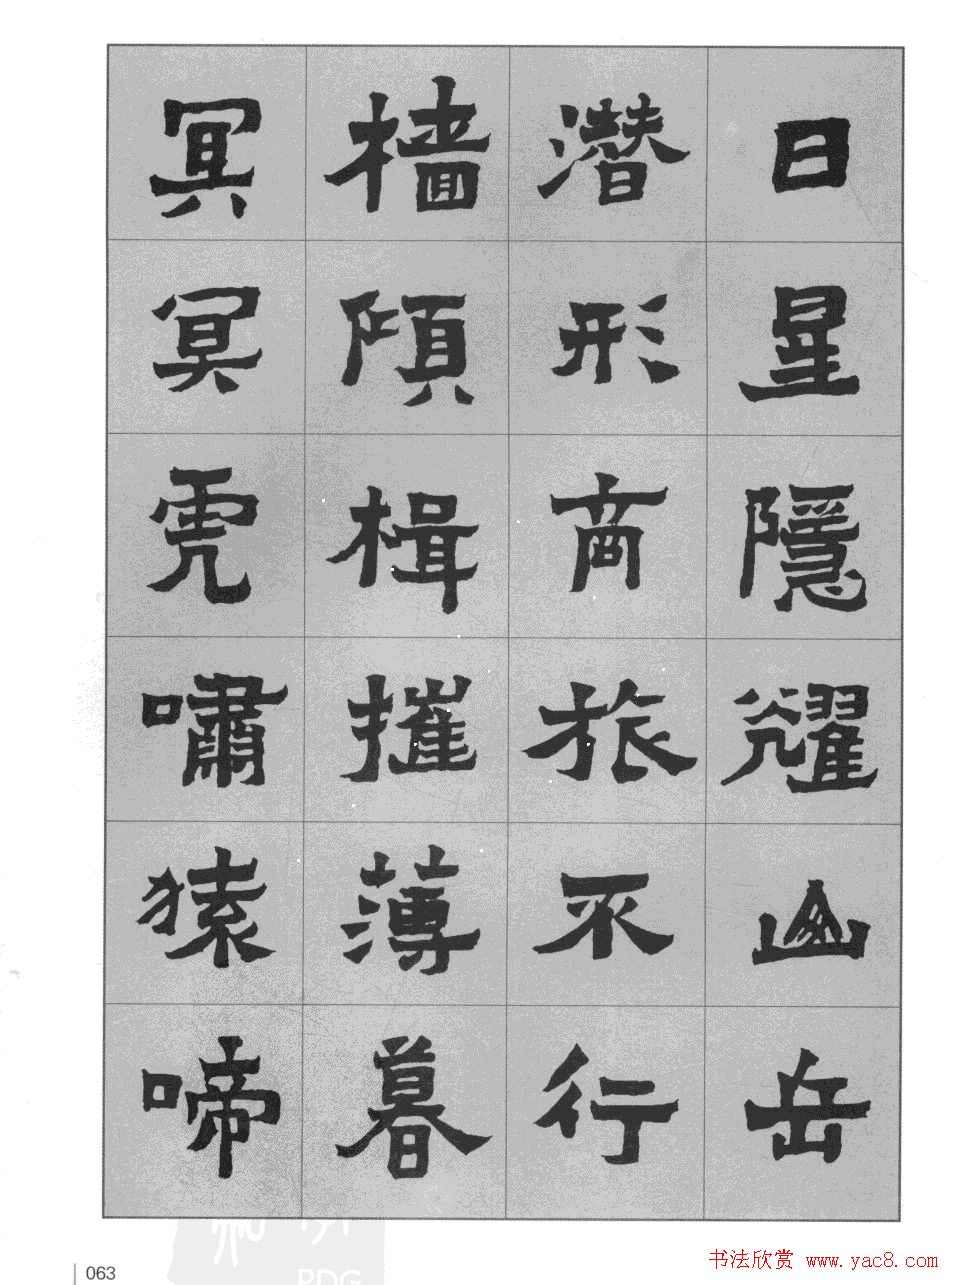 日星隱耀山岳
潛形商旅不行
檣傾楫摧薄暮
冥冥虎嘯猿啼
063
书法欣赏 www.yac8.com
PDG